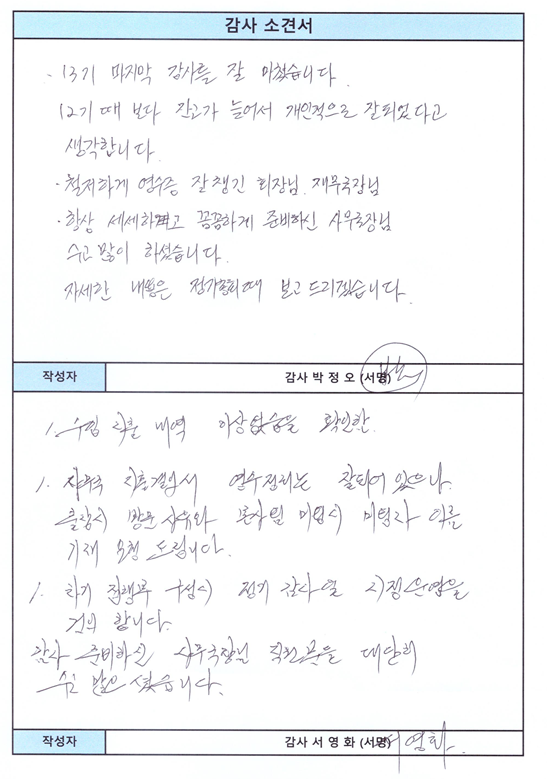 감사 소견서
· 13기 마지막 감사를 잘 마쳤습니다.
12기 때 보다 잔고가 늘어서 개인적으로 잘되었다고
생각합니다.
· 철저하게 영수증 잘 챙긴 회장님, 재무국장님
· 항상 세세하고 꼼꼼하게 준비하신 사무국장님
수고 많이 하셨습니다.
자세한 내용은 정기총회때 보고 드리겠습니다.
작성자
감사 박 정 오 (서명)
1. 수입 지출 내역 이상없음을 확인함.
1. 사무국 지출결의서 영수정리는 잘되어 있으나.
출장시 방문 사유와 미팅시 미팅자 이름
기재 요청 드립니다.
1. 차기 집행부 구성시 정기 감사일 지정운영을
건의 합니다.
감사 준비하신 사무국장님 직원분들 대단히
수고 많으셨습니다.
작성자
감사 서 영 화 (서명)
서영화